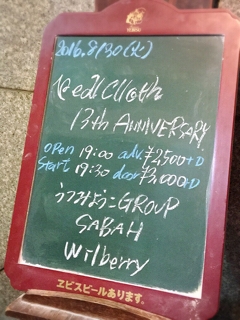 2016.8/30(火)
Red Cloth
13th ANNIVERSARY
open 19:00 adv. ¥2500+D
start 19:30 door ¥3,000+D
うつみようこGROUP
SABAH
Wilberry
ヱビスビールあります。